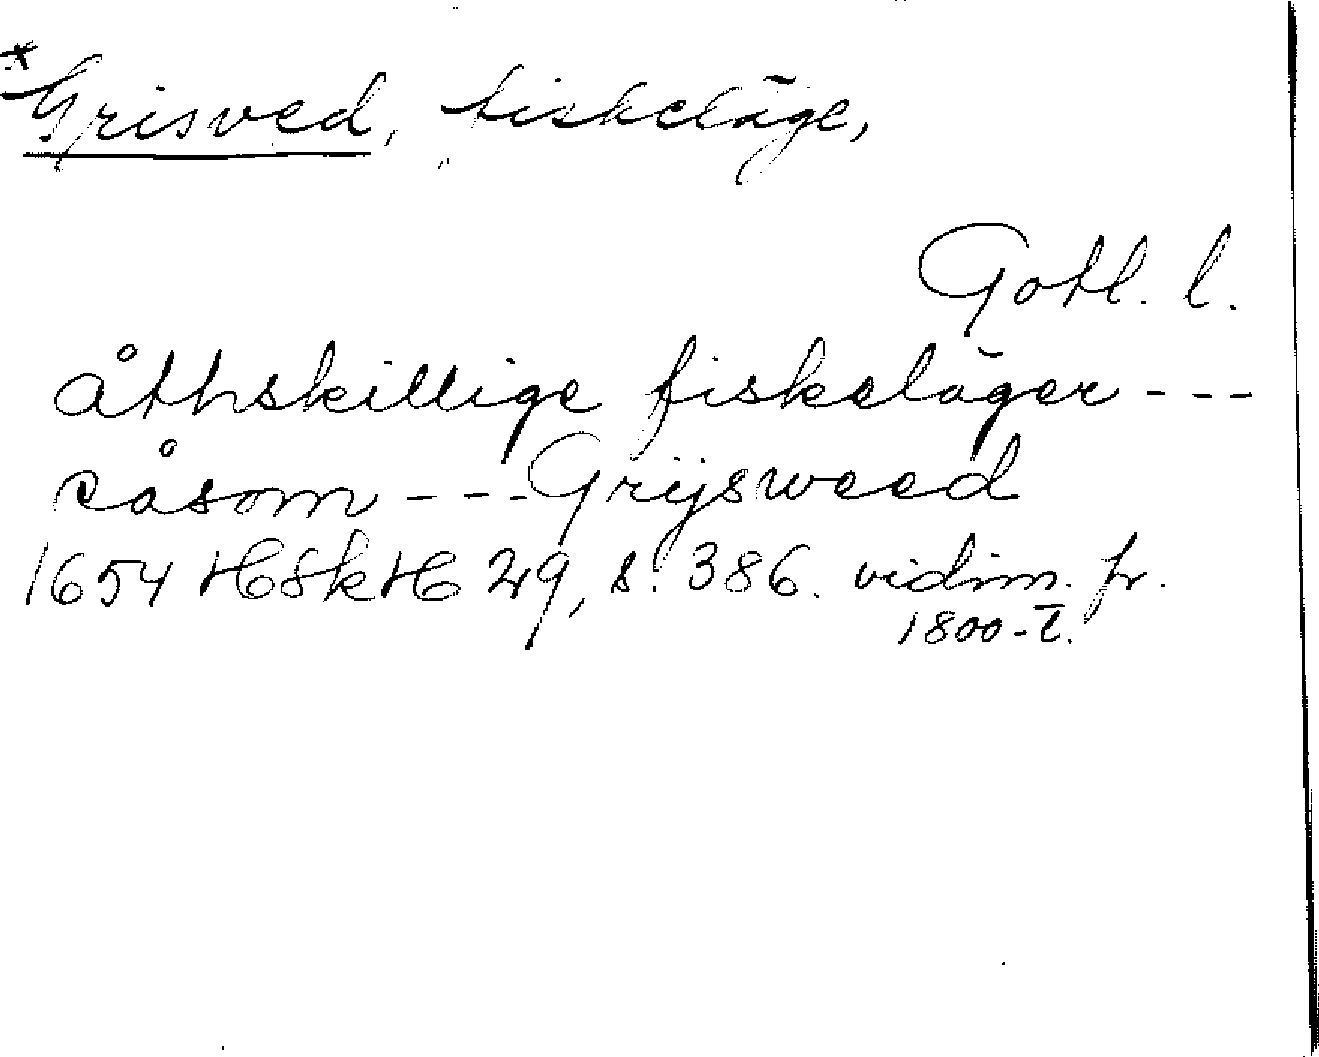 *Grisved, fiskeläge,
Gotl. l.
åthskillige fiskeläger ---
såsom --- Grijsweed
1654 HSkH 29, s. 386. vidim. fr.
1800-t.